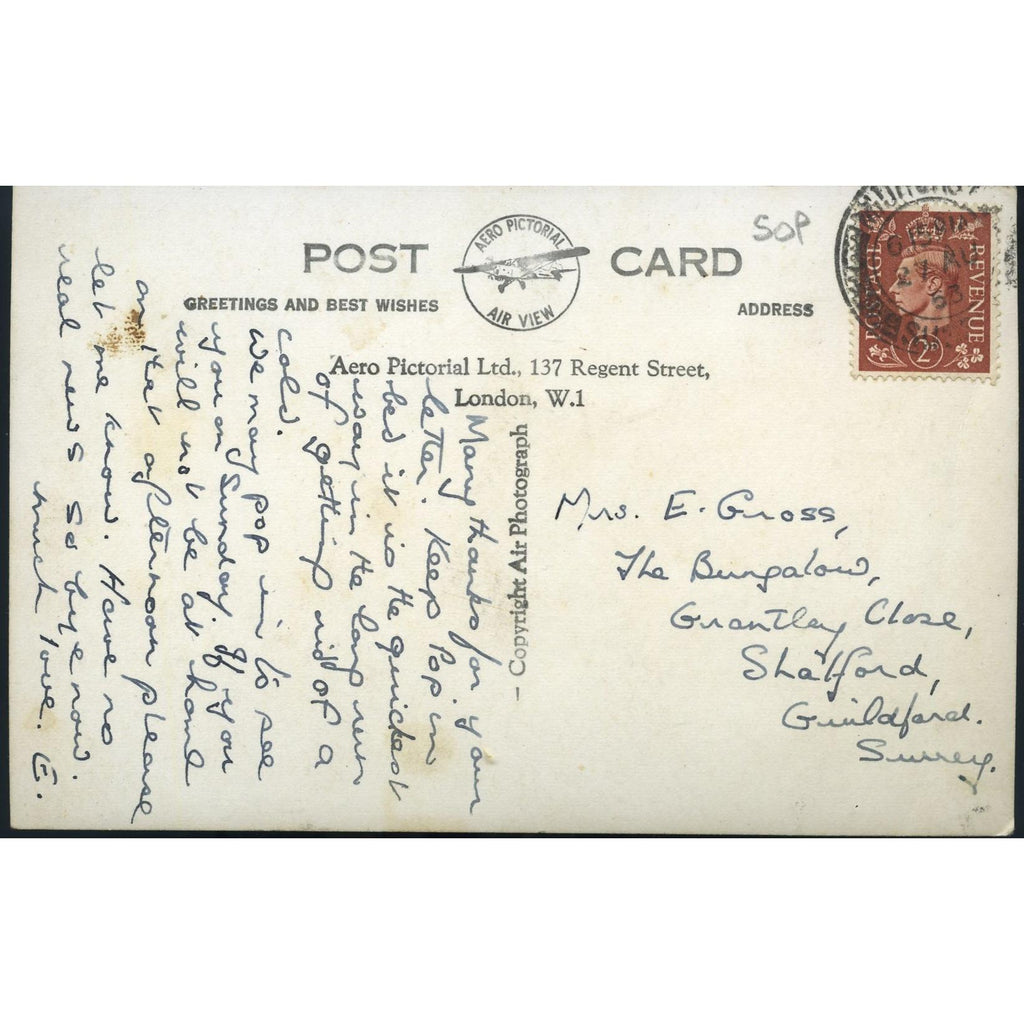 POST CARD
AERO PICTORIAL
AIR VIEW
GREETINGS AND BEST WISHES
ADDRESS
Aero Pictorial Ltd., 137 Regent Street,
London, W.1
— Copyright Air Photograph
50P
POSTAGE REVENUE
2D
Many thanks for your
letter. Keep Pop in
bed it is the quickest
way in the long run
of getting rid of a
cold.
We may pop in to see
you on Sunday. If you
will not be at home
on that afternoon please
let me know. Have no
real news so bye now.
much love. E.
Mrs. E. Gross,
The Bungalow,
Grantley Close,
Shalford,
Guildford.
Surrey.